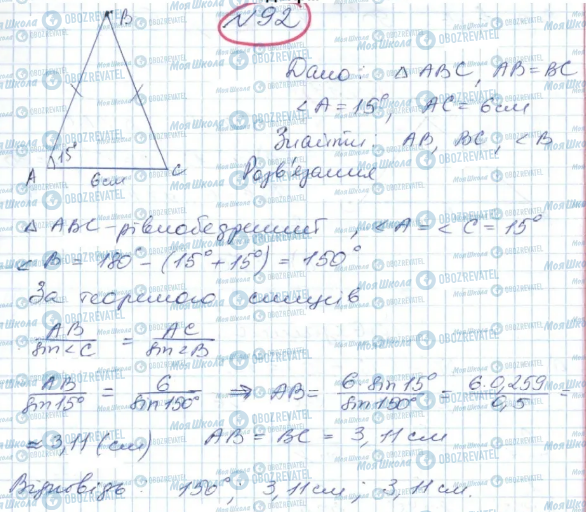 №92
B
Дано: △ABC, AB=BC
∠A=15°, AC=6см
Знайти: AB, BC, ∠B
15°
A 6см C Розв'язання
△ABC - рівнобедрений, ∠A=∠C=15°
∠B = 180° - (15°+15°) = 150°
За теоремою синусів
AB/sin∠C = AC/sin∠B
AB/sin15° = 6/sin150° ⇒ AB = 6·sin15°/sin150° = 6·0,259/0,5 =
≈ 3,11 (см) AB = BC = 3,11см
Відповідь: 150°; 3,11см; 3,11см.